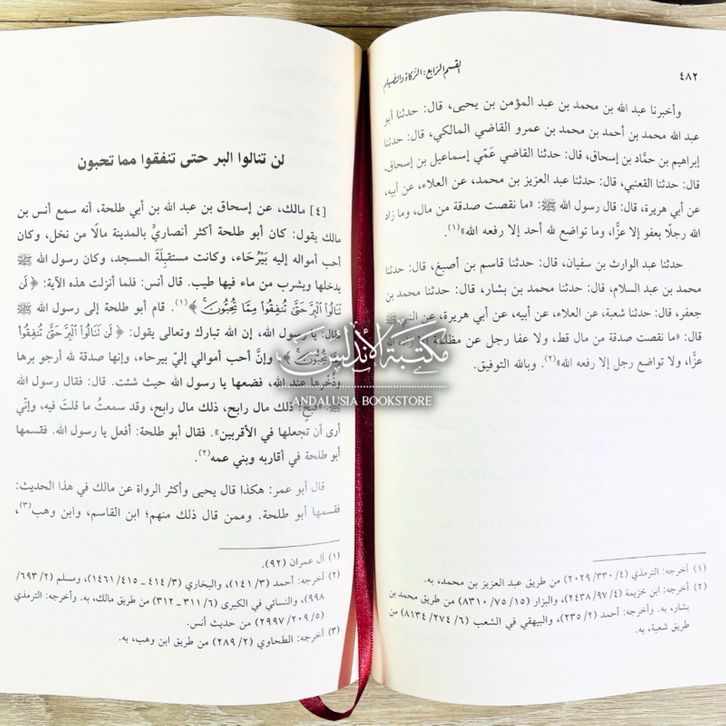 ٤٨٢
القسم الرابع: الزكاة والصيام
وأخبرنا عبد الله بن محمد بن عبد المؤمن بن يحيى، قال: حدثنا أبو
عبد الله محمد بن أحمد بن محمد بن عمرو القاضي المالكي، قال: حدثنا
إبراهيم بن حمَّاد بن إسحاق، قال: حدثنا القاضي عَمّي إسماعيل بن إسحاق،
قال: حدثنا القعنبي، قال: حدثنا عبد العزيز بن محمد، عن العلاء، عن أبيه،
عن أبي هريرة، قال: قال رسول الله ﷺ: «ما نقصت صدقة من مال، وما زاد
الله رجلًا بعفو إلا عزًّا، وما تواضع لله أحد إلا رفعه الله»(١).
حدثنا عبد الوارث بن سفيان، قال: حدثنا قاسم بن أصبغ، قال: حدثنا
محمد بن عبد السلام، قال: حدثنا محمد بن بشار، قال: حدثنا محمد بن
جعفر، قال: حدثنا شعبة، عن العلاء، عن أبيه، عن أبي هريرة، عن النبي ﷺ
قال: «ما نقصت صدقة من مال قط، ولا عفا رجل عن مظلمة إلا زاده الله
عزًّا، ولا تواضع رجل إلا رفعه الله»(٢). وبالله التوفيق.
(١) أخرجه: الترمذي (٤/ ٣٣٠/ ٢٠٢٩) من طريق عبد العزيز بن محمد، به.
(٢) أخرجه: ابن خزيمة (٤/ ٩٧/ ٢٤٣٨)، والبزار (١٥/ ٧٥/ ٨٣١٠) من طريق محمد بن
بشار، به. وأخرجه: أحمد (٢/ ٢٣٥)، والبيهقي في الشعب (٦/ ٢٧٤/ ٨١٣٤) من
طريق شعبة، به.
لن تنالوا البر حتى تنفقوا مما تحبون
[٤] مالك، عن إسحاق بن عبد الله بن أبي طلحة، أنه سمع أنس بن
مالك يقول: كان أبو طلحة أكثر أنصاريٍّ بالمدينة مالًا من نخل، وكان
أحب أمواله إليه بَيْرُحَاء، وكانت مستقبِلَةَ المسجد، وكان رسول الله ﷺ
يدخلها ويشرب من ماء فيها طيب. قال أنس: فلما أنزلت هذه الآية: ﴿لَن
تَنَالُوا۟ ٱلْبِرَّ حَتَّىٰ تُنفِقُوا۟ مِمَّا تُحِبُّونَ﴾(١). قام أبو طلحة إلى رسول الله ﷺ
فقال: يا رسول الله، إن الله تبارك وتعالى يقول: ﴿لَن تَنَالُوا۟ ٱلْبِرَّ حَتَّىٰ تُنفِقُوا۟
مِمَّا تُحِبُّونَ﴾ وإنَّ أحب أموالي إليّ بيرحاء، وإنها صدقة لله أرجو برها
وذُخْرها عند الله، فضعها يا رسول الله حيث شئت. قال: فقال رسول الله
ﷺ: «بَخٍ! ذلك مال رابح، ذلك مال رابح، وقد سمعتُ ما قلتَ فيه، وإنّي
أرى أن تجعلها في الأقربين». فقال أبو طلحة: أفعل يا رسول الله. فقسمها
أبو طلحة في أقاربه وبني عمه(٢).
قال أبو عمر: هكذا قال يحيى وأكثر الرواة عن مالك في هذا الحديث:
فقسمها أبو طلحة. وممن قال ذلك منهم؛ ابن القاسم، وابن وهب(٣)،
(١) آل عمران (٩٢).
(٢) أخرجه: أحمد (٣/ ١٤١)، والبخاري (٣/ ٤١٤ ـ ٤١٥/ ١٤٦١)، ومسلم (٢/ ٦٩٣/
٩٩٨)، والنسائي في الكبرى (٦/ ٣١١ ـ ٣١٢) من طريق مالك، به. وأخرجه: الترمذي
(٥/ ٢٠٩/ ٢٩٩٧) من حديث أنس.
(٣) أخرجه: الطحاوي (٢/ ٢٨٩) من طريق ابن وهب، به.
مكتبة الأندلس
ANDALUSIA BOOKSTORE